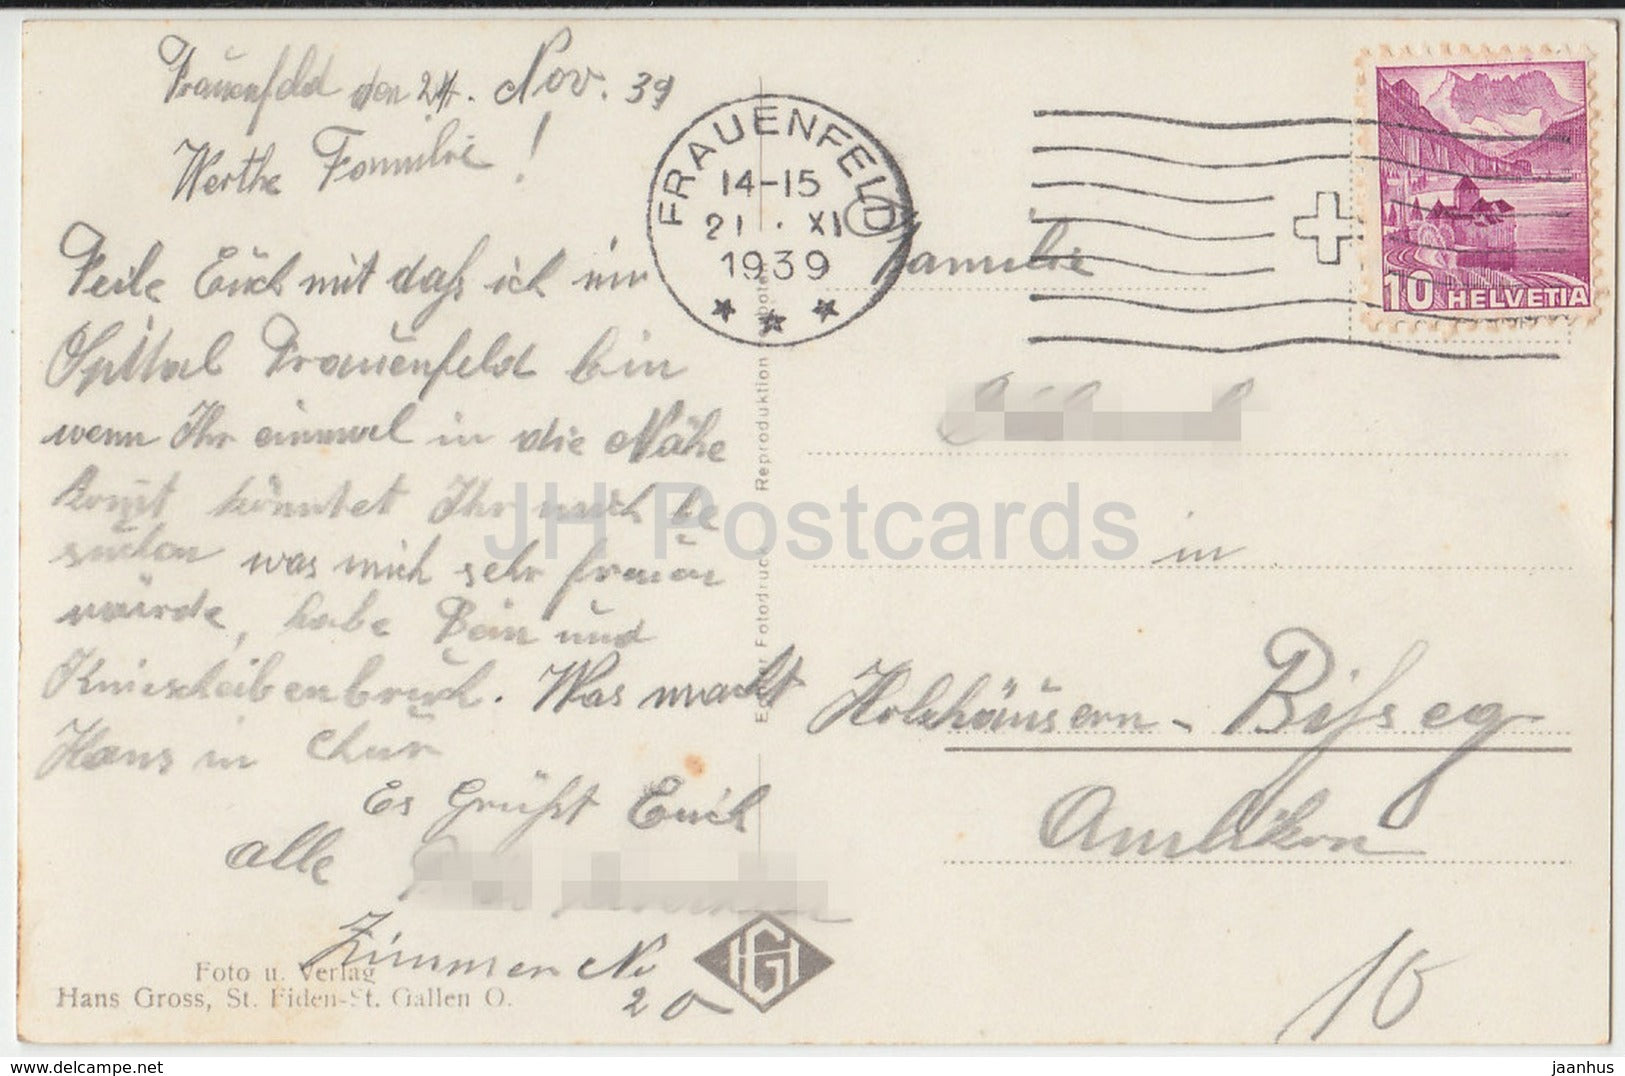 Frauenfeld den 21. Nov. 39
Werthe Familie !
Teile Euch mit daß ich im
Spittal Frauenfeld bin
wenn Ihr einmal in die Nähe
komt könntet Ihr mich be
suchen was mich sehr freuen
würde, habe Bein und
Kniescheibenbruch. Was macht
Hans in Chur
Es Grüßt Euch
alle
Zimmer No
20
Foto u. Verlag
Hans Gross, St. Fiden-St. Gallen O.
HG
Echter Fotodruck Reproduktion
FRAUENFELD
14-15
21. XI
1939
10 HELVETIA
Familie
in
Holzhäusern - Bißegg
Amlikon
10
JH Postcards
www.delcampe.net
jaanhus